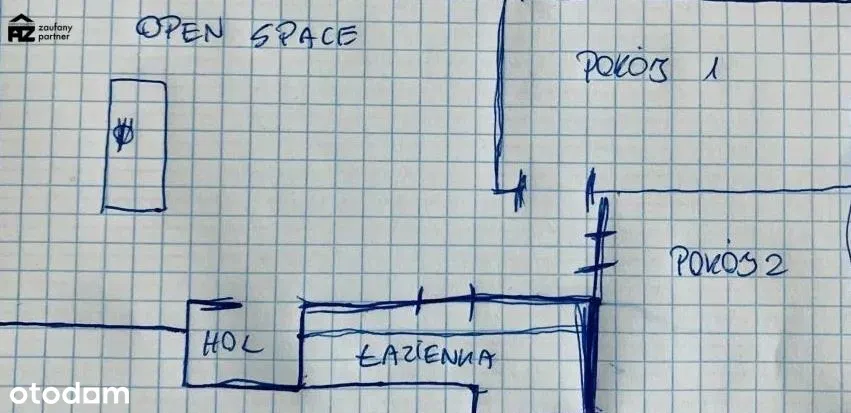 AZ zaufany
partner
OPEN SPACE
POKÓJ 1
POKÓJ 2
HOL
ŁAZIENKA
otodom